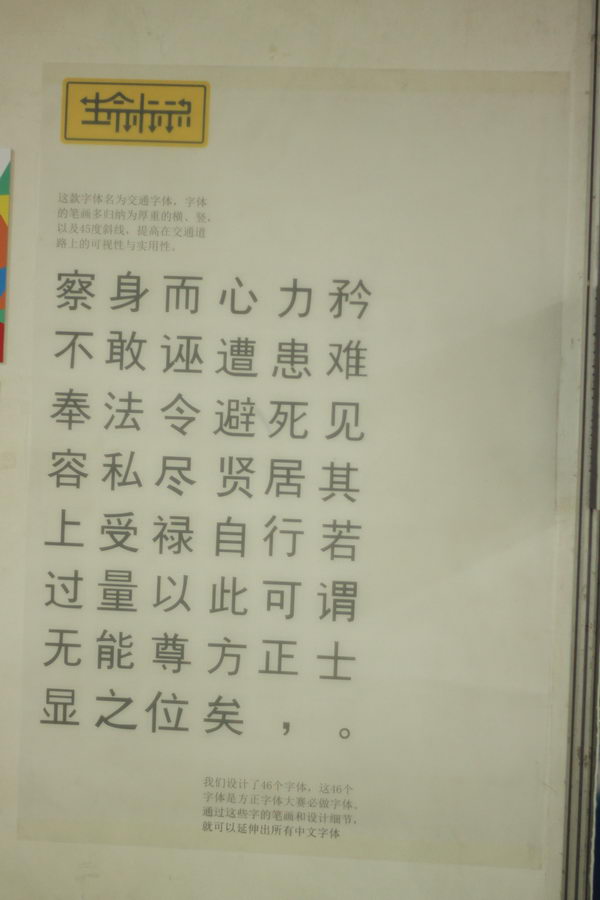 生命标识
这款字体名为交通字体，字体
的笔画多归纳为厚重的横、竖，
以及45度斜线，提高在交通道
路上的可视性与实用性。
察身而心力矜
不敢诬遭患难
奉法令避死见
容私尽贤居其
上受禄自行若
过量以此可谓
无能尊方正士
显之位矣，。
我们设计了46个字体，这46个
字体是方正字体大赛必做字体。
通过这些字的笔画和设计细节，
就可以延伸出所有中文字体